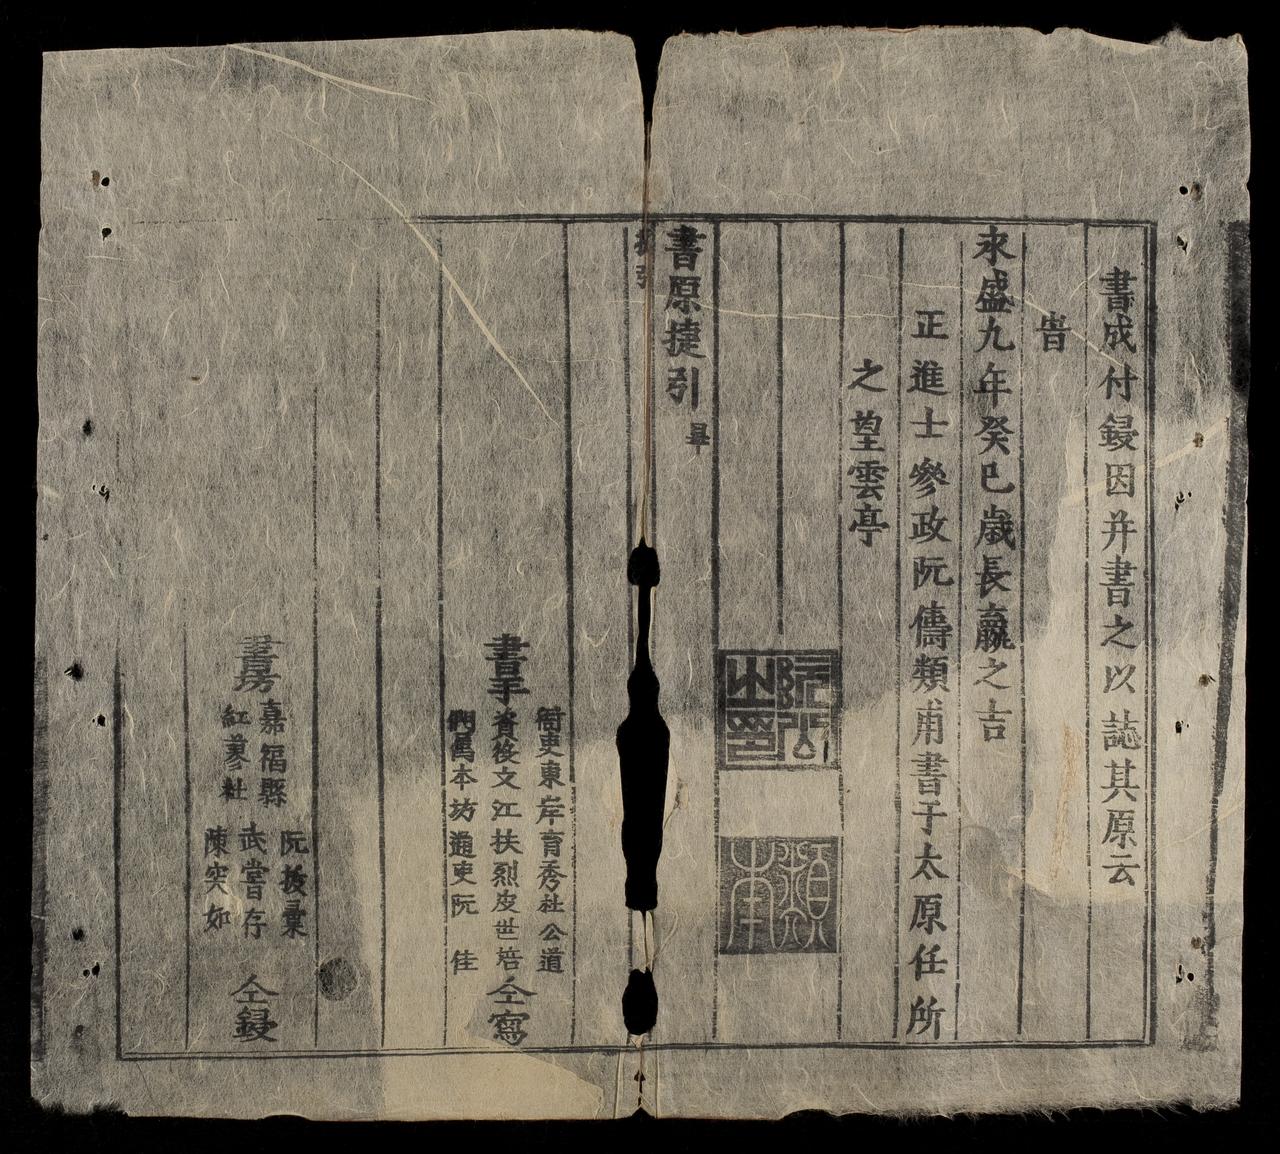 書成付鋟因并書之以誌其原云
旹
永盛九年癸巳歲長嬴之吉
正進士參政阮儔類甫書于太原任所
之望雲亭
書原捷引畢
書手
衙吏東岸育秀社公道
資後文江扶烈皮世培
本坊通吏阮佳
仝寫
書房
嘉福縣
紅蓼社
阮援彙
武嘗存
陳突如
仝鋟